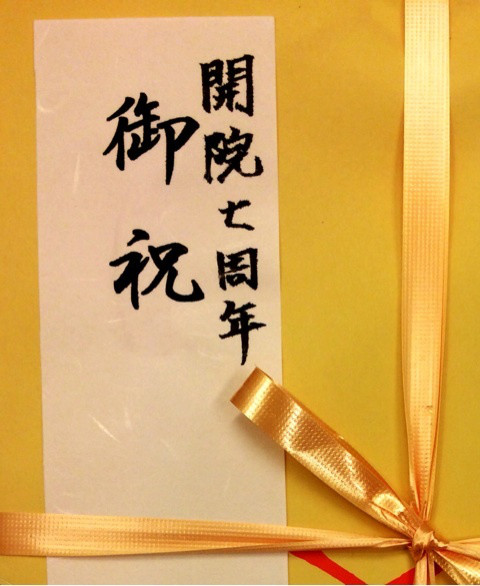 開院七周年
御祝